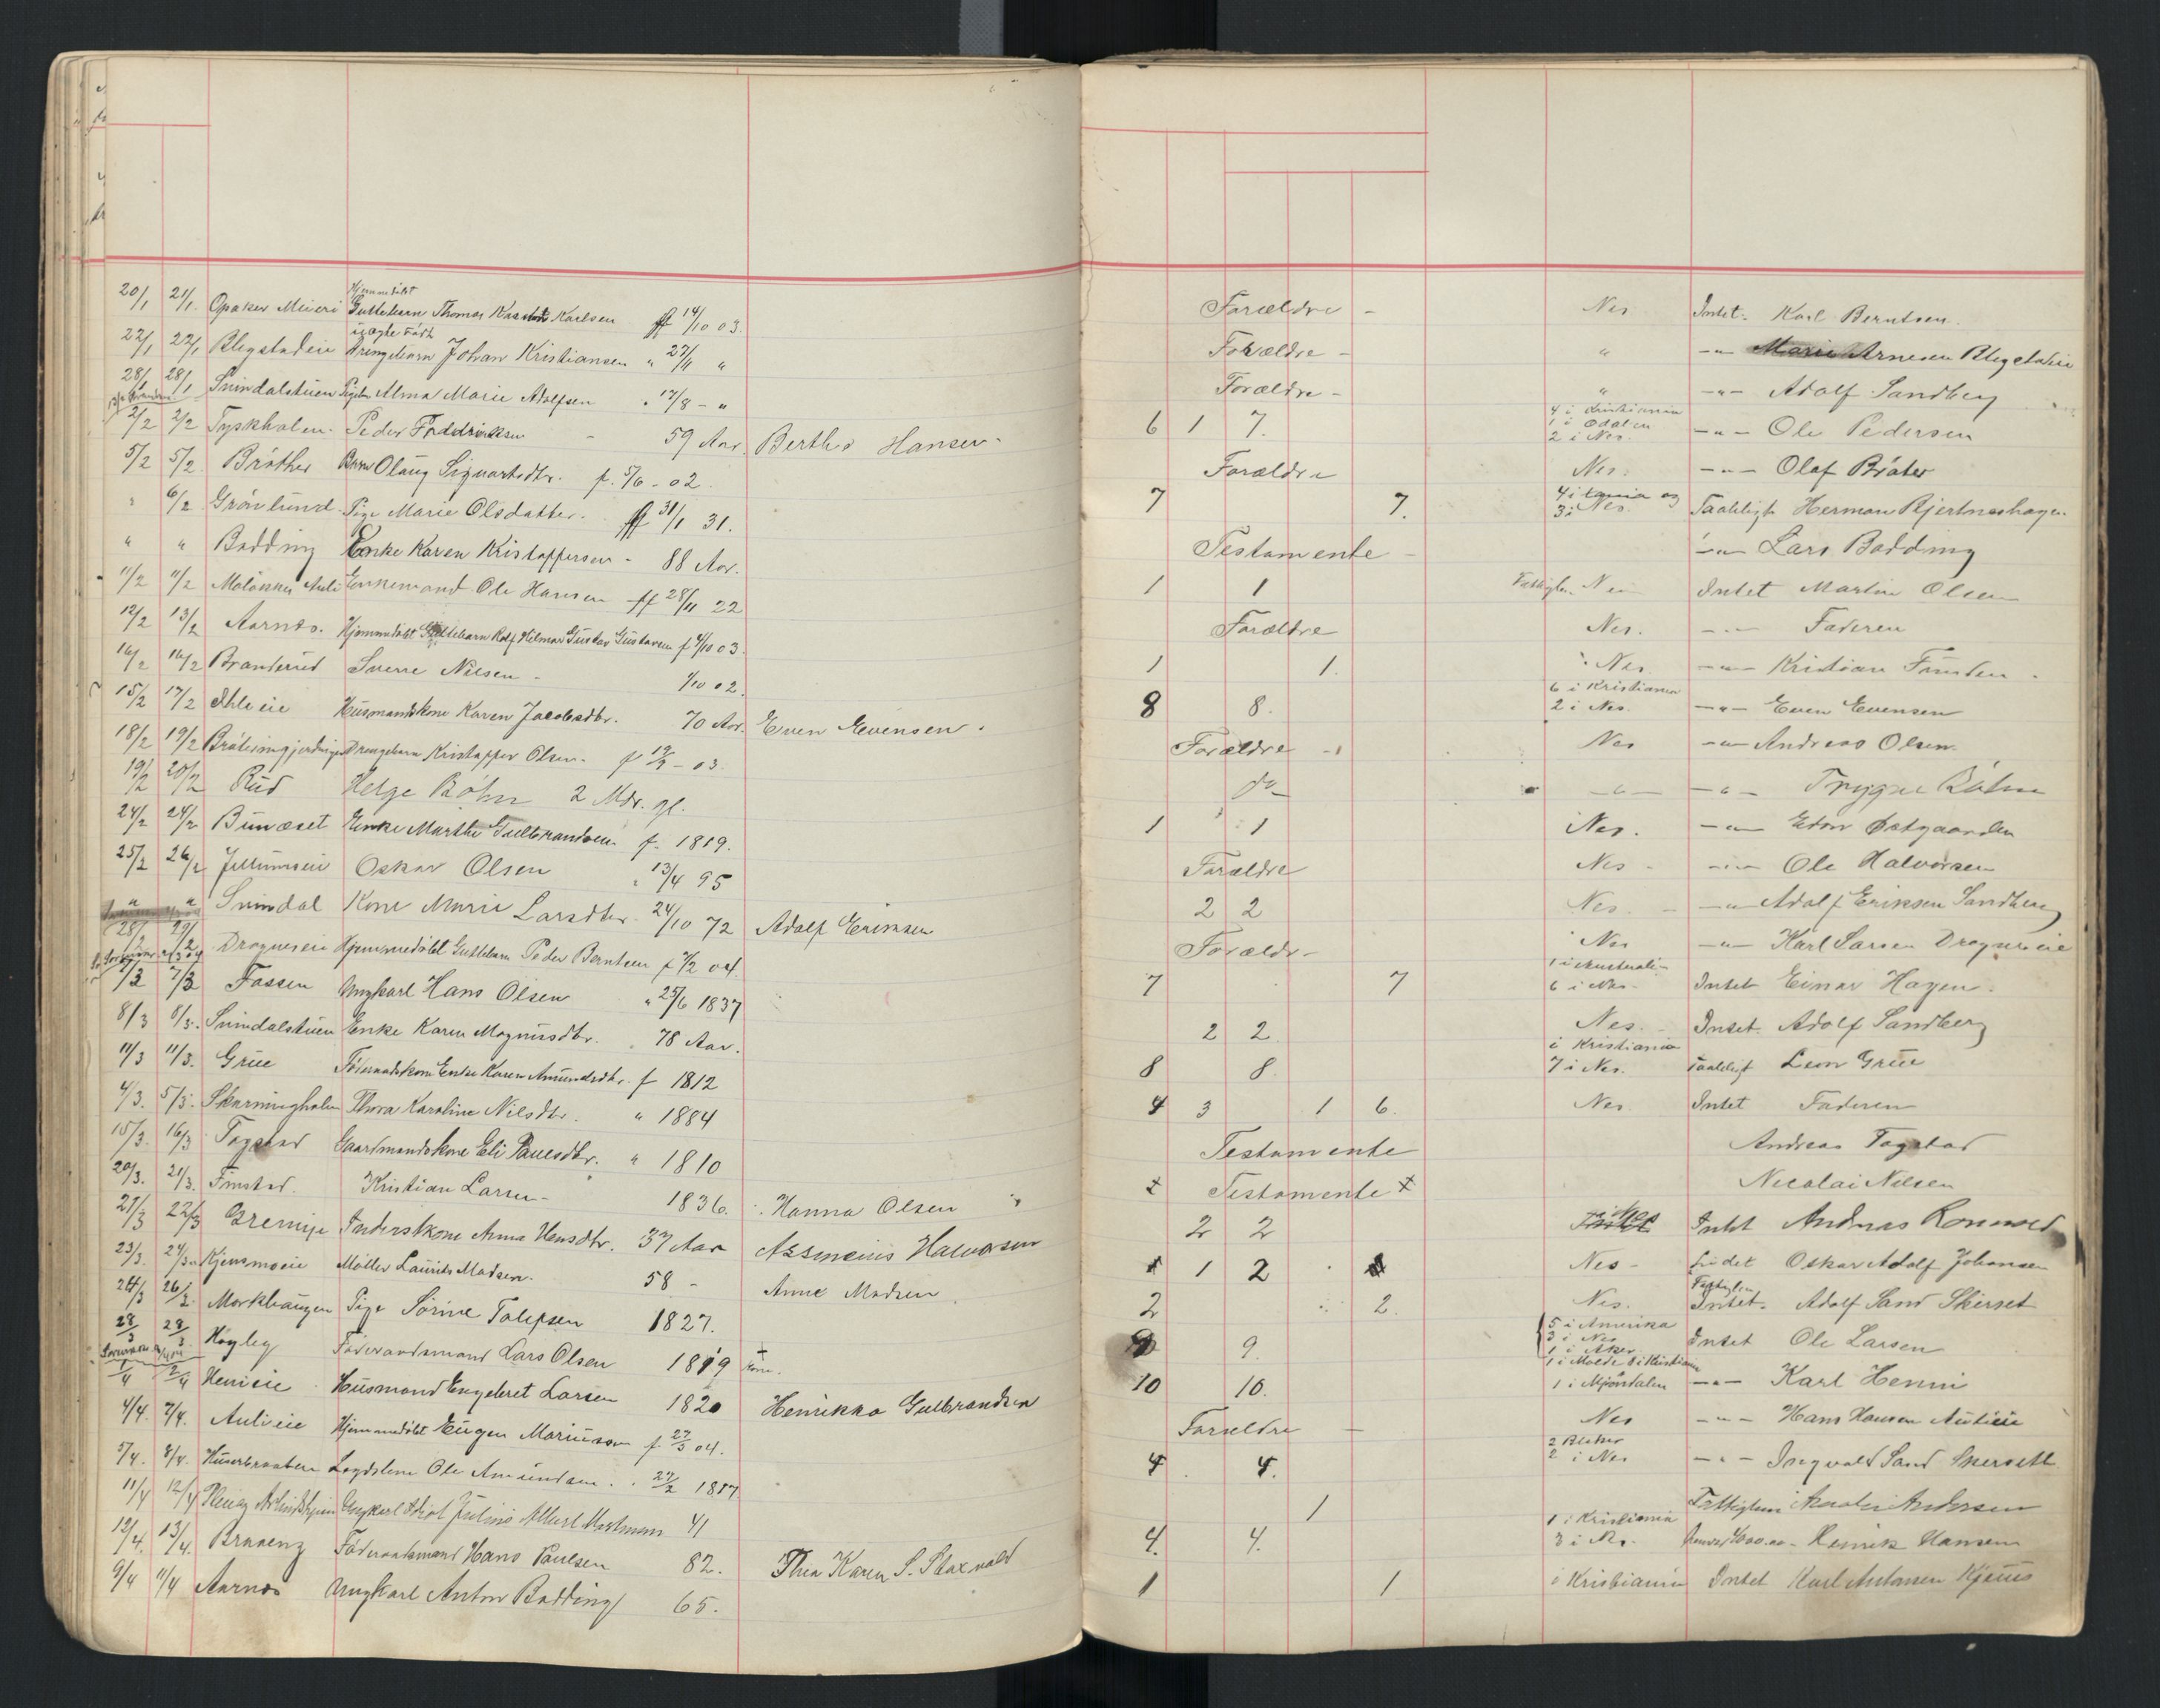 Hjemmedøbt
20/1 21/1 Opaker Meieri Guttebarn Thomas Karlsen ff 14/10 03. Forældre - Nes Intet. Karl Berntsen.
uægte født
22/1 22/1 Blegstadeie Drengebarn Johan Kristiansen " 27/11 " Forældre - " -"- Marie Arnesen Blegstadeie
28/1 28/1 Svindalstuen Pigebn Alma Marie Adolfsen " 17/8 - " Forældre - " -"- Adolf Sandberg
2/2 2/2 Tyskholen. Peder Freddriksen - 59 Aar. Berthe Hansen. 6 1 7. 4 i Kristiania 1 i Odalen 2 i Nes. -"- Ole Pedersen
5/2 5/2 Bråthen Barn Olaug Sigvartsdtr. f. 5/6 - 02. Forældre Nes. -"- Olaf Bråten
" 6/2 Grönlund. Pige Marie Olsdatter. ff 31/1 31. 7 7. 3 i Nes. Taaleligt Herman Bjertneshagen
" " Bodding Enke Karen Kristoffersen - 88 Aar. Testamente - -"- Lars Bodding
11/2 11/2 Enkemand Ole Hansen ff 28/11 22 1 1 Intet Martin Olsen
12/2 13/2 Aarnes. Hjemmedøbt Guttebarn Rolf Hilmar Gustav Gustavsen f 4/10 03. Forældre Nes. -"- Faderen
16/2 16/2 Branderud Sverre Nilsen - 1/10 02. 1 1. Nes -"- Kristian
15/2 17/2 Ihleeie Husmandskone Karen Jacobsdtr. 70 Aar. Even Evensen. 8 8. 6 i Kristiania 2 i Nes. -"- Even Evensen
18/2 19/2 Drengebarn Kristoffer Olsen. f - 03. Forældre -" Nes -"- Andreas Olsen.
19/2 20/2 Rud Helge Böhn 2 Mdr. gl. do -"- -"- Trygve Böhn
24/2 24/2 Bunæset Enke Marthe Gulbrandsen f. 1819. 1 1 Nes. -"-
25/2 26/2 Oskar Olsen " 13/4 95 Forældre Nes - -"- Ole Halvorsen
" " Svindal Kone Marie Larsdtr. 24/10 72 Adolf Eriksen 2 2 Nes. -"- Adolf Eriksen Sandberg
28/2 29/2 Dragneseie Hjemmedøbt Guttebarn Peder Berntsen f 7/2 04. Forældr - Nes -"- Karl Larsen Dragneseie
7/3 7/3 Fossen Ungkarl Hans Olsen " 25/6 1837 7 7 1 i Australi- 6 i Nes - Intet Einar Hagen.
8/3 8/3. Svindalstuen Enke Karen Magnusdtr. " 78 Aar. 2 2 Nes. - Intet. Adolf Sandberg
11/3 11/3. Grue Föderaadskone Enke Karen Amundsdtr. f 1812 8 8 i Kristiania 7 i Nes. Taaleligt Leon Grue
4/3. 5/3. Skarningholen Thora Karoline Nilsdtr. " 1884 4 3 1 6. Nes Intet Faderen
15/3. 16/3 Fagstad Gaardmandskone Eli Paulsdtr. " 1810 Testamente Andreas Fagstad
20/3. 21/3. Finstad. Kristian Larsen - 1836. Hanna Olsen " Testamente Nicolai Nilsen
21/3 22/3 Inderstkone Anna Hensdtr. 37 Aar Assmeius Halvorsen 2 2 Intet Andreas
23/3. 24/3. Kjensmoeie Möller Laurits Madsen. 58 - Anne Madsen 1 2 Nes - Intet Oskar Adolf Johansen
24/3 26/3. Morkhaugen Pige Sörine Tolefsen 1827. 2 2. Nes. Intet. Adolf Sand Skirset
28/3 28/3. Högley Föderaadsmand Lars Olsen 1819 9. 5 i Amerika 3 i Nes 1 i Aker Intet Ole Larsen
1/4 2/4 Hennieie Husmand Engebret Larsen 1820 Henrikka Gulbrandsen 10 10. 1 i Molde 8 i Kristiania 1 i Mjöndalen -"- Karl Henni
4/4. 7/4. Aulieie Hjemmedöbt Eugen Mariusson f. 27/3 04. Forældre - Nes -"- Hans Hansen Aulieie
5/4. 8/4. Huserbraaten Lægdslem Ole Amundsen. " 27/2 1817 4 4. 2 i Nes -"- Ingvald Sand Skersett
11/4 12/4 Ungkarl Idiot Julius Albert Hartmann 41 1 Andersen
12/4. 13/4. Föderaadsmand Hans Paulsen 82. Thea Karen S. 4. 4. 1 i Kristiania 3 i Nes. Henrik Hansen
9/4 11/4 Aarnes Ungkarl Anton Bodding 65. 1 1 i Kristiania Intet Karl Antonsen Kjeus